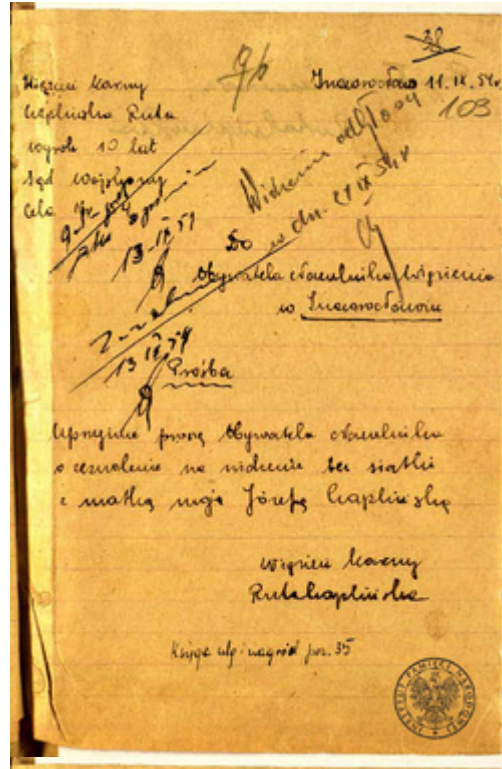 38
9/6
Inowrocław 11.IX.54r.
103
Więzień karny
Czaplińska Ruta
wyrok 10 lat
Sąd Wojskowy
Cela
13-IX 54
Widzenie
w dn. 21 IX 54r
Do
Obywatela Naczelnika Więzienia
w Inowrocławiu
13 IX 54
Prośba
Uprzejmie proszę Obywatela Naczelnika
o zezwolenie na widzenie bez siatki
z matką moją Józefą Czaplińską
Więzień karny
Ruta Czaplińska
Księga nagród poz. 35
INSTYTUT PAMIĘCI NARODOWEJ